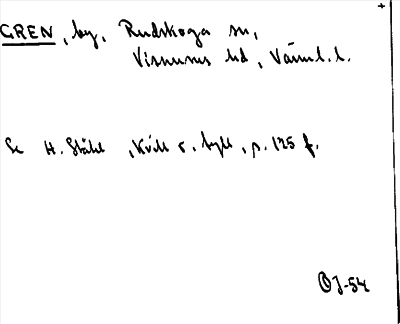 GREN, by, Rudskoga sn,
Visnums hd, Värml. l.
Se H. Ståhl, Kvill o. byll, p. 125 f.
OJ-54